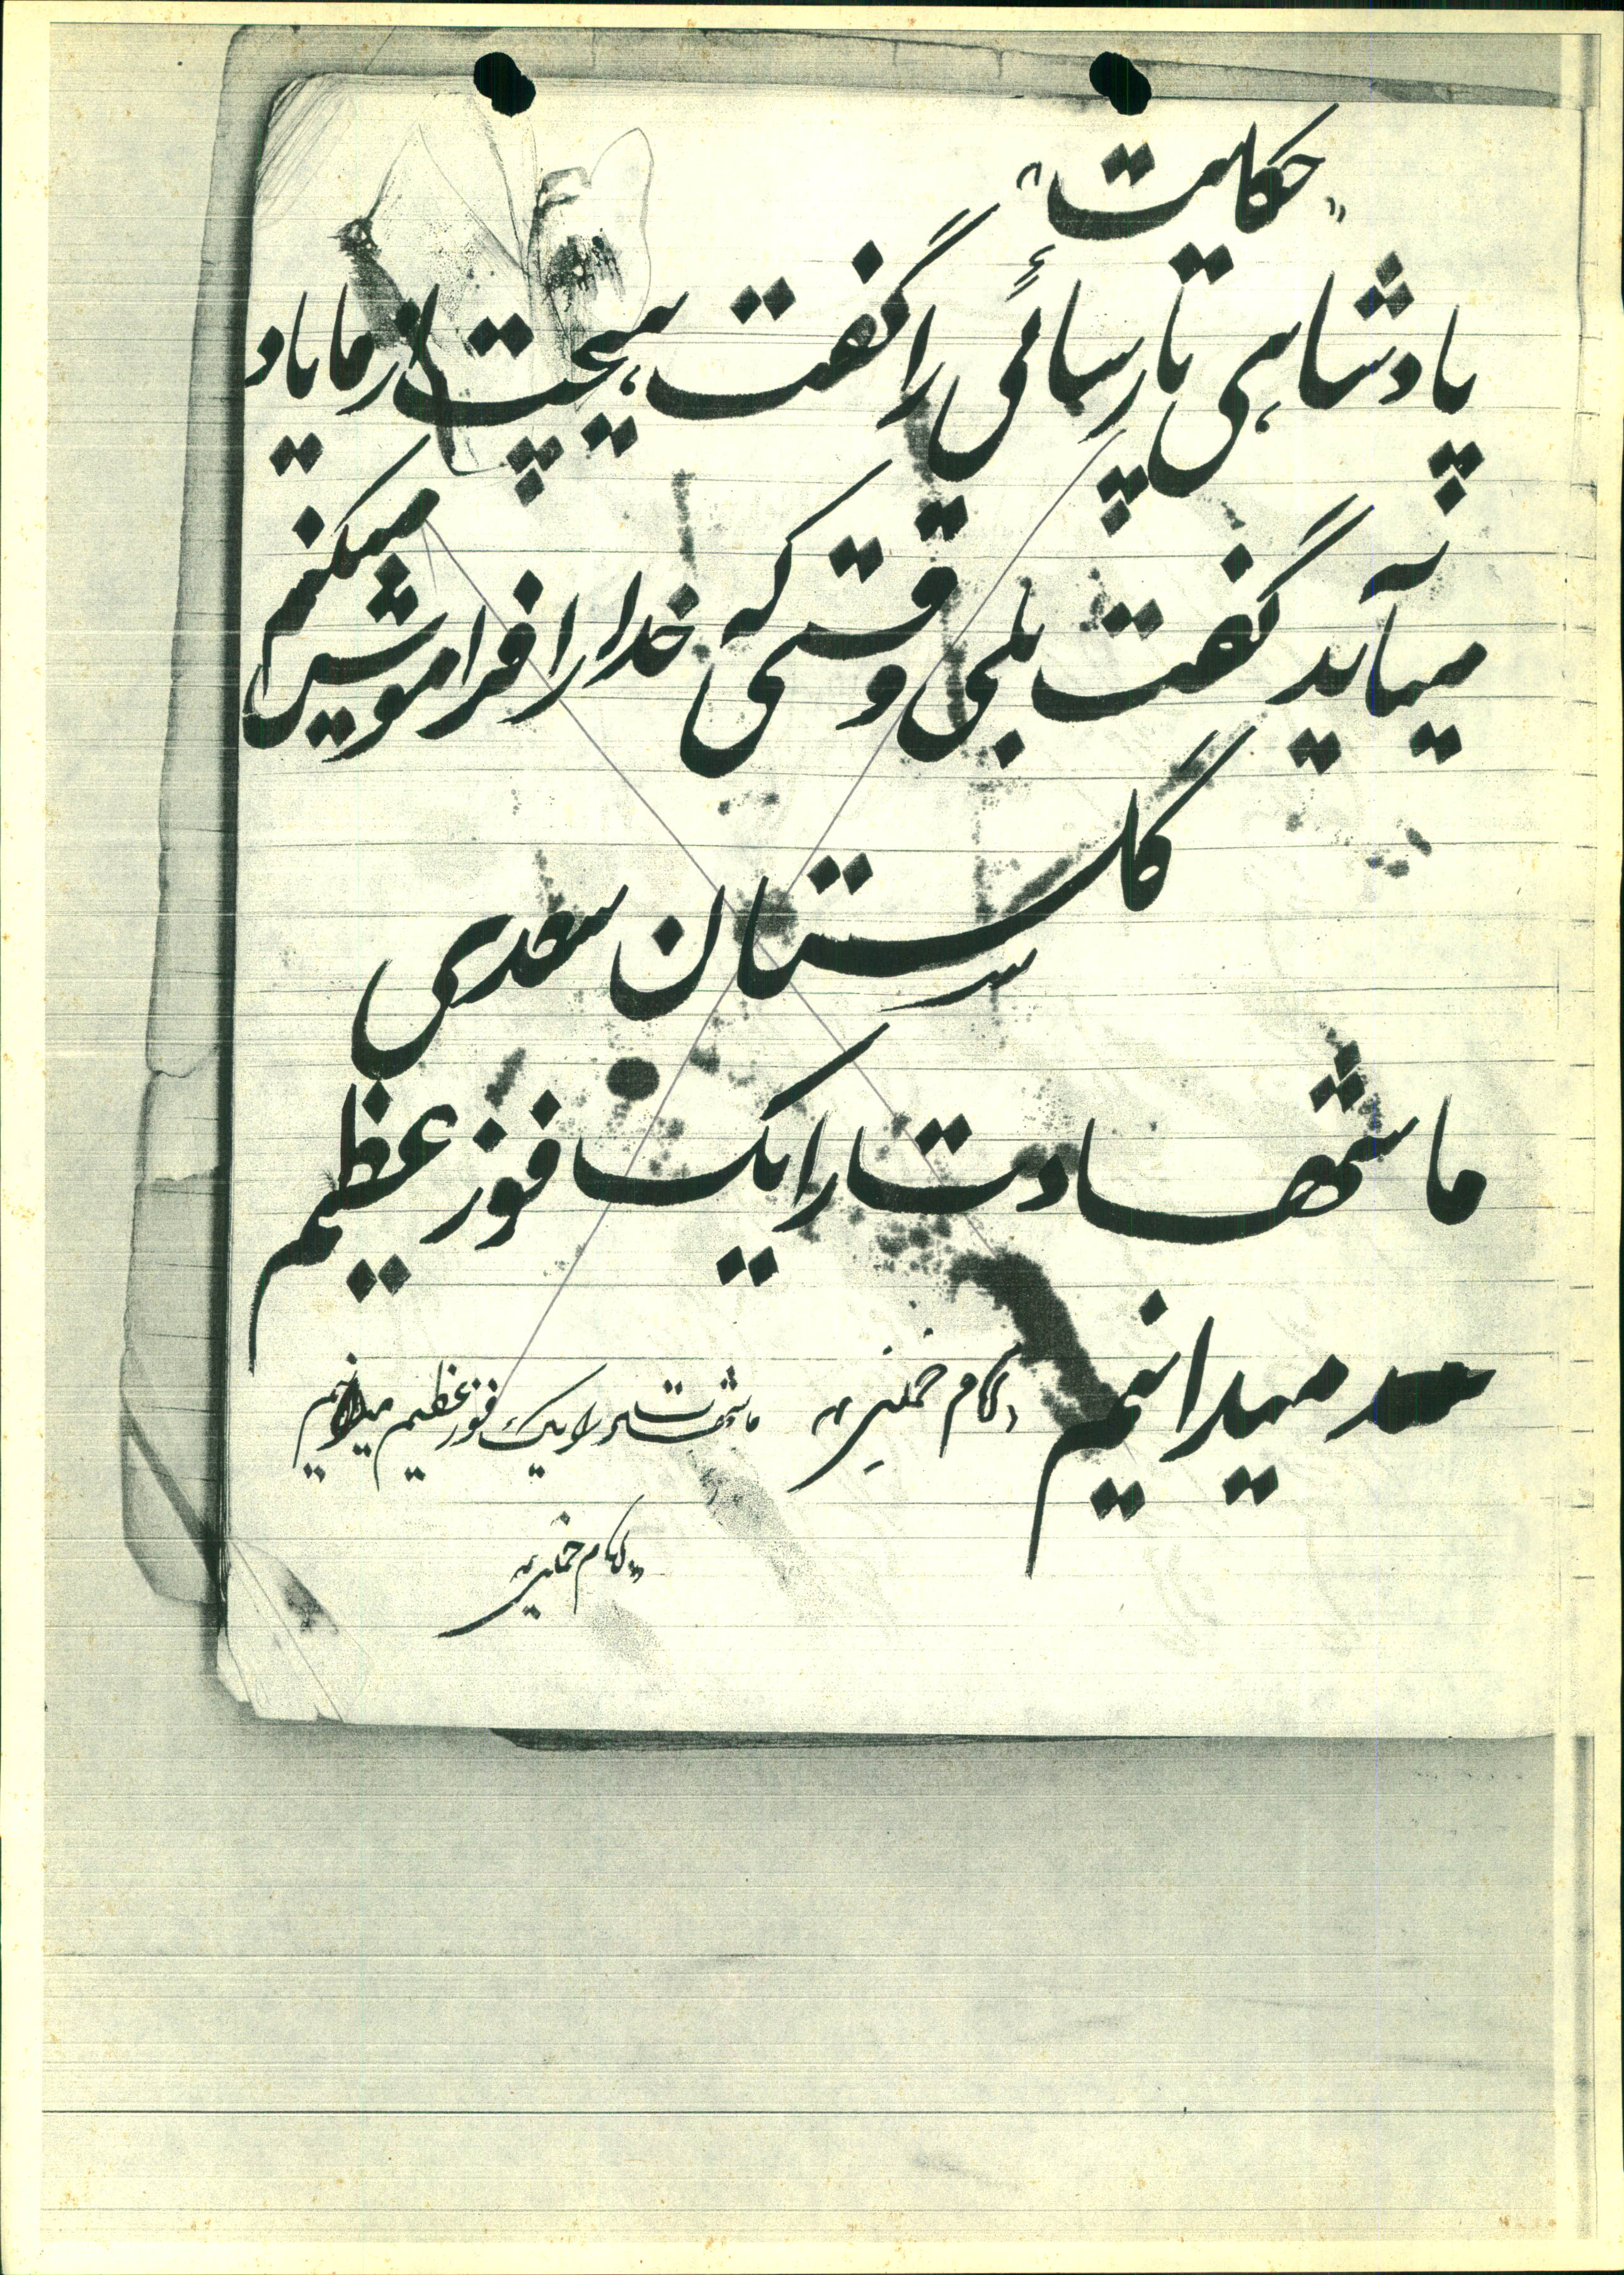 "حکایت"
پادشاهی پارسائی را گفت هیچت از ما یاد
میآید گفت بلی وقتی که خدا را فراموش میکنم
گلستان سعدی
ما شهادت را یک فوز عظیم
میدانیم "امام خمینی" ما شهادت را یک فوز عظیم میدانیم
"امام خمینی"